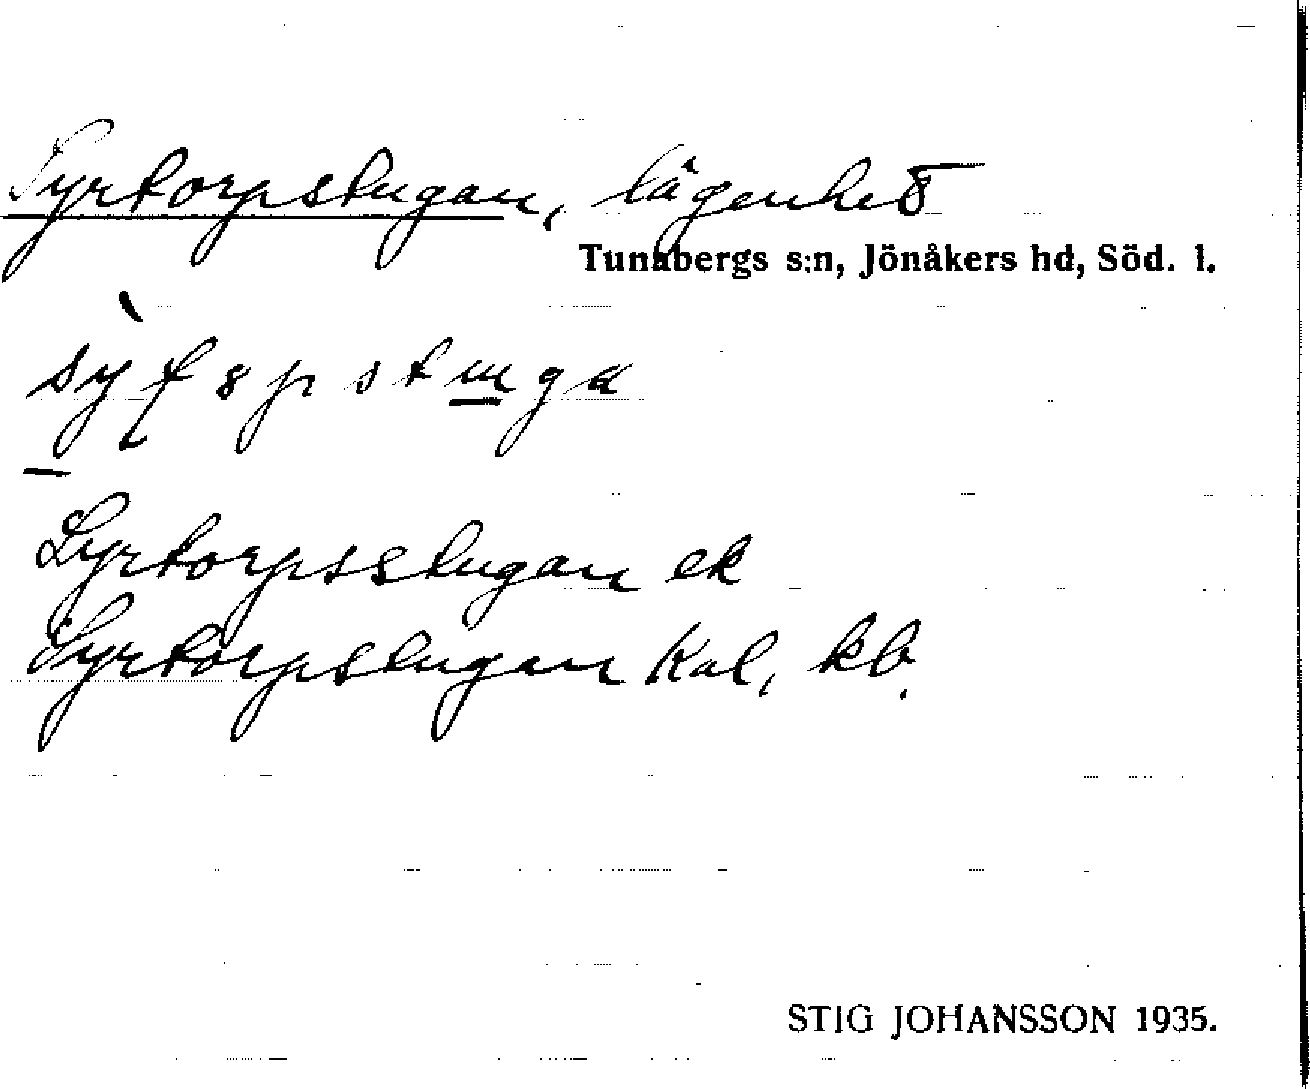 Syrtorpstugan, lägenhet
Tunabergs s:n, Jönåkers hd, Söd. l.
Syrtorpsstugan ek
Syrtorpstugan Kal, kb.
STIG JOHANSSON 1935.